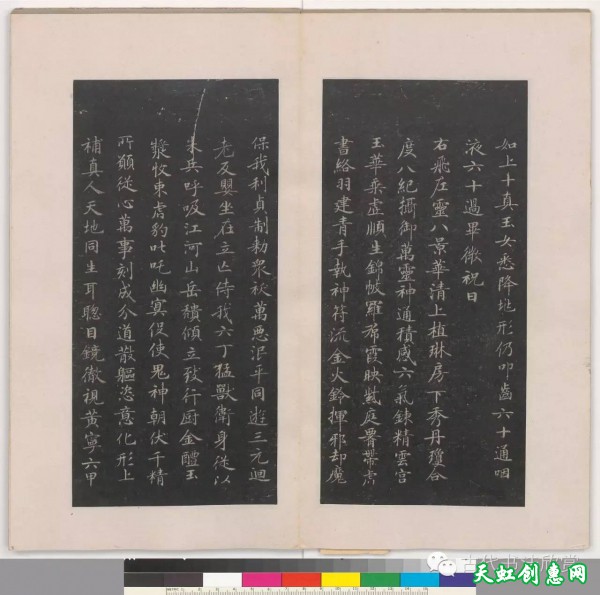 如上十真玉女悉降地形仍叩齒六十通咽
液六十過畢微祝曰
右飛左靈八景華清上植琳房下秀丹瓊合
度八紀攝御萬靈神通積感六氣鍊精雲宮
玉華乘虛順生錦帔羅裙霞映紫庭腰帶虎
書絡羽建青手執神符流金火鈴揮邪却魔
保我利貞制勑衆祅萬惡泯平同遊三元迴
老反嬰坐在立亡侍我六丁猛獸衛身從以
朱兵呼吸江河山岳頹傾立致行厨金醴玉
漿牧束虎豹叱吒幽冥役使鬼神朝伏千精
所願從心萬事剋成分道散軀恣意化形上
補真人天地同生耳聰目鏡徹視黃寧六甲
古代书法欣赏
天虹创惠网